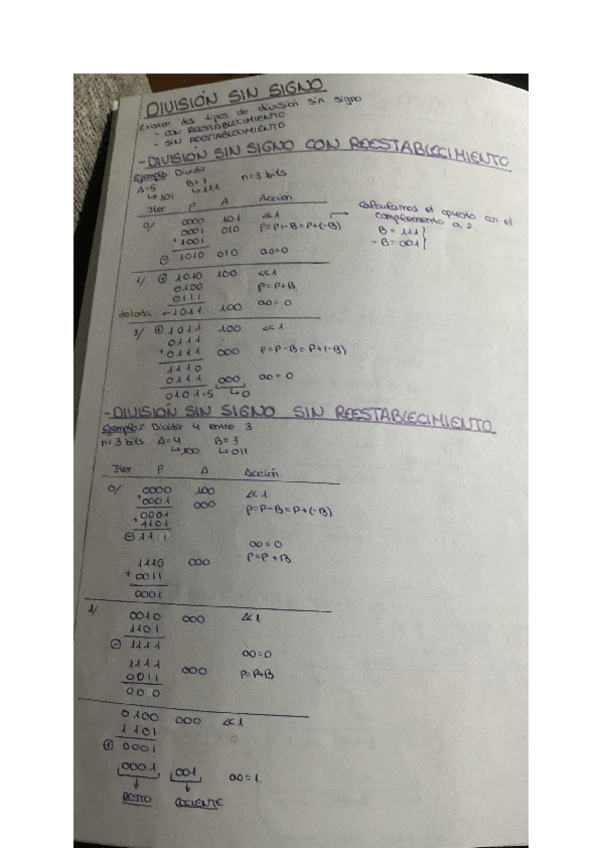 DIVISIÓN SIN SIGNO
Existen dos tipos de división sin signo
- CON REESTABLECIMIENTO
- SIN REESTABLECIMIENTO
-DIVISIÓN SIN SIGNO CON REESTABLECIMIENTO
Ejemplo: Dividir
A=5 B=7 n=3 bits
↳101 ↳111
Iter P A Acción
0/ 0000 101 <<1
0001 010 P=P-B=P+(-B)
+1001
⊖ 1010 010 a0=0
Calculamos el opuesto con el
complemento a 2
B = 111
-B = 001
1/ ⊕ 1010 100 <<1
0100 P=P+B
0111 a0=0
←1011 100
2/ ⊕ 1011 100 <<1
0111
+0111 000 P=P-B=P+(-B)
1110
0111 000 a0=0
0101=5 ↳0
-DIVISIÓN SIN SIGNO SIN REESTABLECIMIENTO
Ejemplo 2: Dividir 4 entre 3
n=3 bits A=4 B=3
↳100 ↳011
Iter P A Acción
0/ 0000 100 <<1
+0001 000 P=P-B=P+(-B)
0001
+1101
⊖1111 a0=0
1110 000 P=P+B
+0011
0001
1/ 0010 000 <<1
1101
⊖ 1111 a0=0
1111 000 P=P+B
0011
000
0100 000 <<1
1101
⊕ 0001
0001 001 a0=1.
RESTO COCIENTE